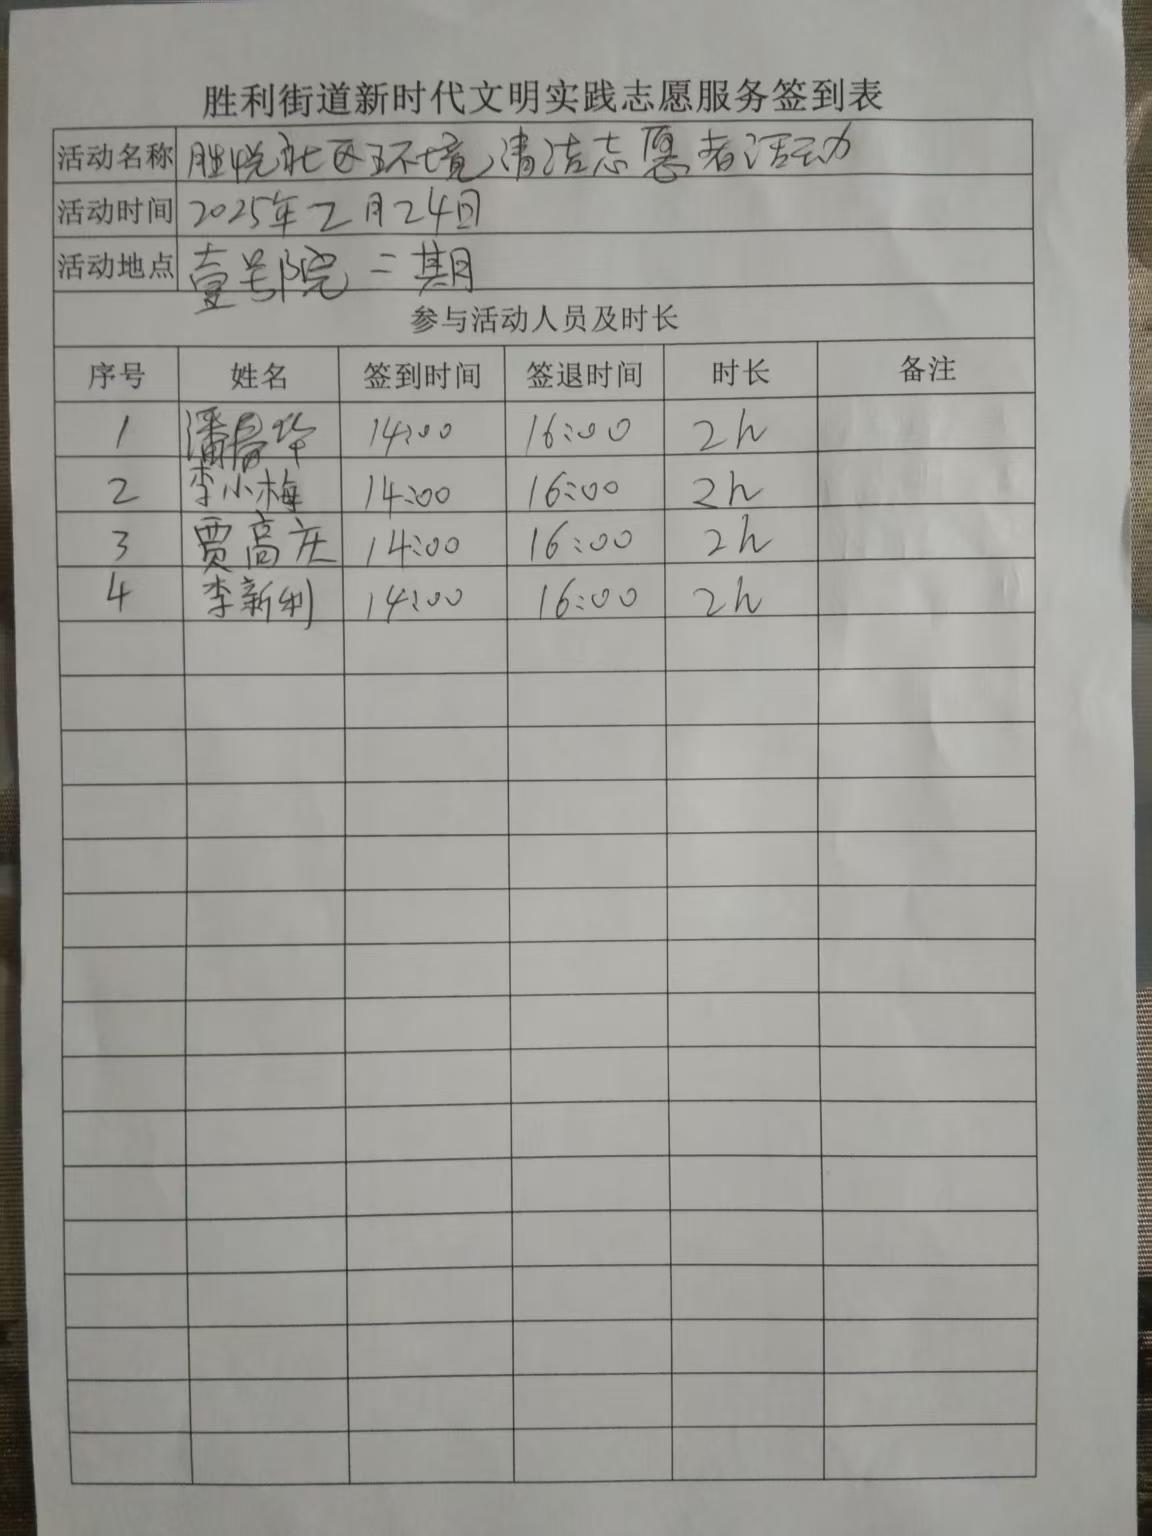 胜利街道新时代文明实践志愿服务签到表
活动名称 胜悦社区环境清洁志愿者活动
活动时间 2025年2月24日
活动地点 壹号院二期
参与活动人员及时长
序号 姓名 签到时间 签退时间 时长 备注
1 潘 华 14:00 16:00 2h
2 李小梅 14:00 16:00 2h
3 贾高庆 14:00 16:00 2h
4 李新利 14:00 16:00 2h